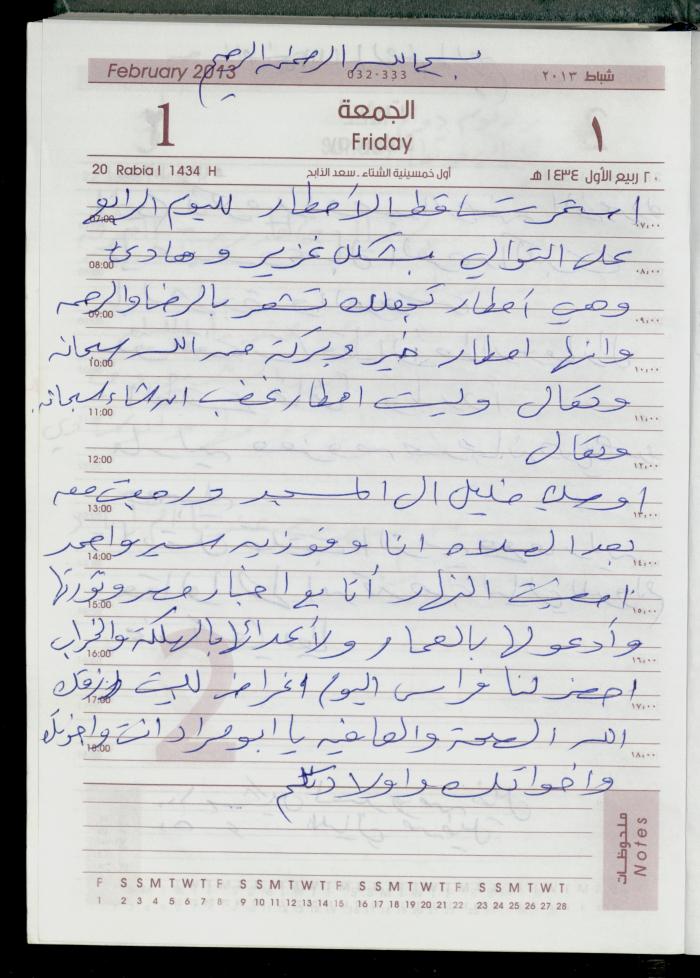 بسم الله الرحمن الرحيم
February 2013 032-333 شباط ٢٠١٣
1 الجمعة ١
Friday
20 Rabia I 1434 H أول خمسينية الشتاء - سعد الذابح ٢٠ ربيع الأول ١٤٣٤ هـ
استمرت تساقط الأمطار لليوم الرابع
07:00 ٠٧:٠٠
على التوالي بشكل غزير وهادئ
08:00 ٠٨:٠٠
وهي أمطار تجعلك تشعر بالرضا والرحمه
09:00 ٠٩:٠٠
وانها امطار خير وبركة من الله سبحانه
10:00 ١٠:٠٠
وتعالى وليست امطار غضب ان شاء سبحانه
11:00 ١١:٠٠
وتعالى
12:00 ١٢:٠٠
اوصلني خليل الى المسجد ورجعت معه
13:00 ١٣:٠٠
بعد الصلاه انا وفوزيه
14:00 ١٤:٠٠
امضيت النهار أتابع اخبار مصر وثورتها
15:00 ١٥:٠٠
وأدعو لها بالعمار ولأعدائها بالهلكة والخراب
16:00 ١٦:٠٠
احضر لنا فراس اليوم اغراض للبيت رزقك
17:00 ١٧:٠٠
الله الصحة والعافيه يا ابو مراد انت واخوتك
18:00 ١٨:٠٠
واخواتك واولادكم
ملحوظات
Notes
F S S M T W T F S S M T W T F S S M T W T F S S M T W T
1 2 3 4 5 6 7 8 9 10 11 12 13 14 15 16 17 18 19 20 21 22 23 24 25 26 27 28